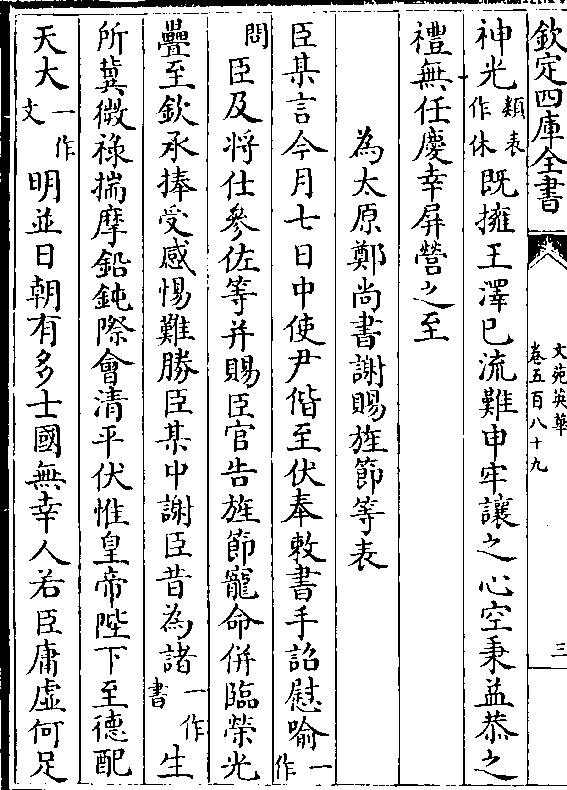 欽定四庫全書
文苑英華
卷五百八十九
三
神光類表作休既擁王澤已流難申牢讓之心空秉益恭之
禮無任慶幸屏營之至
為太原鄭尚書謝賜旌節等表
臣某言今月七日中使尹偕至伏奉敕書手詔慰喻一作
問臣及將仕參佐等并賜臣官告旌節寵命併臨榮光
疊至欽承捧受感惕難勝臣某中謝臣昔為諸一作書生
所冀微祿揣摩鉛鈍際會清平伏惟皇帝陛下至德配
天大一作文明並日朝有多士國無幸人若臣庸虛何足